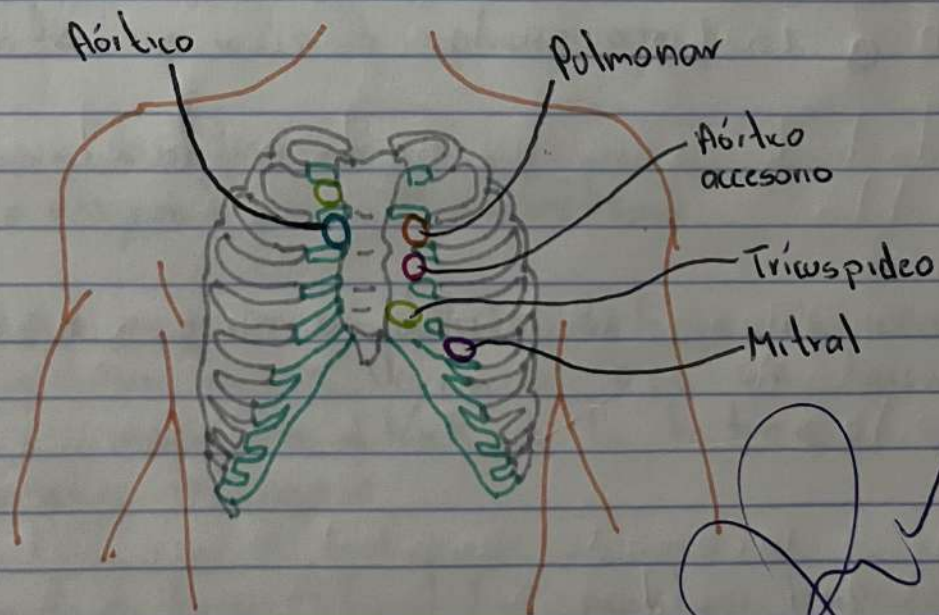 Aórtico
Pulmonar
Aórtico
accesorio
Tricuspideo
Mitral